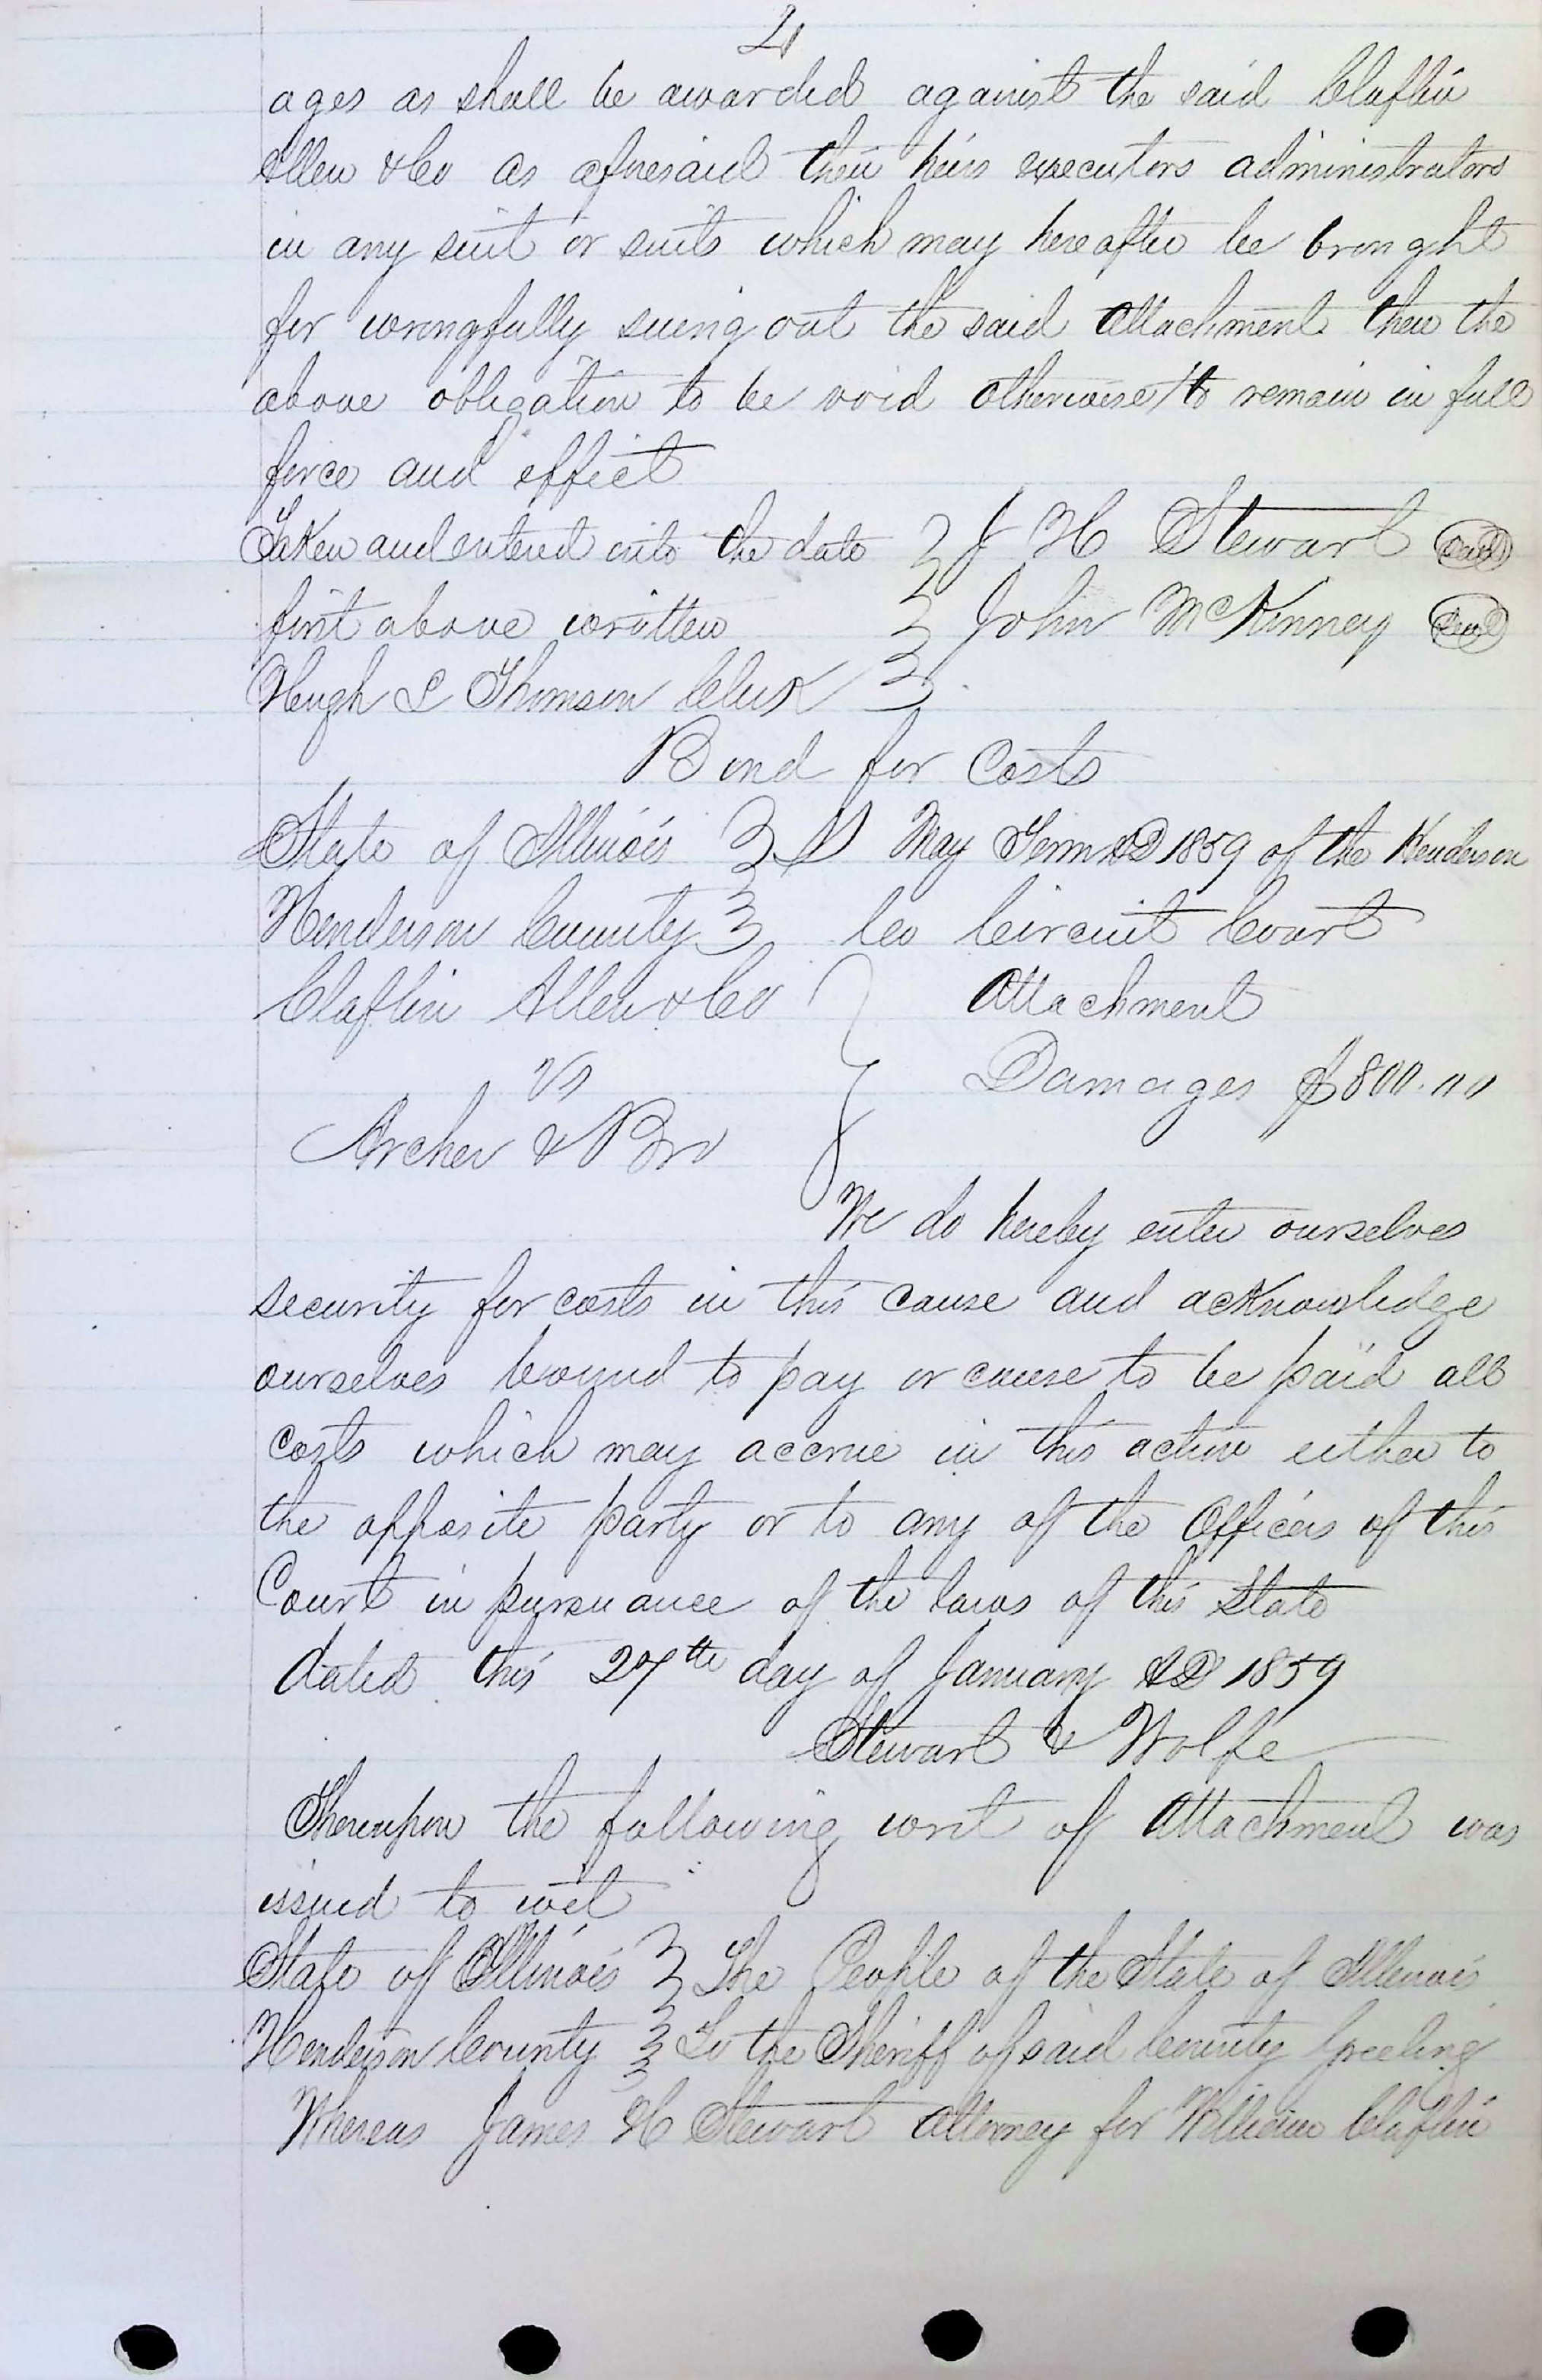 2
ages as shall be awarded against the said Claflin
Allen & Co as aforesaid their heirs executors administrators
in any suit or suits which may hereafter be brought
for wrongfully sueing out the said Attachment then the
above obligation to be void otherwise to remain in full
force and effect
Taken and entered into the date } J H Stewart (seal)
first above written } John McKinney (seal)
Hugh L Thomson Clerk }
Bond for Costs
State of Illinois } SS May Term AD 1859 of the Henderson
Henderson County } Co Circuit Court
Claflin Allen & Co } Attachment
vs } Damages $800.00
Archer & Bro
We do hereby enter ourselves
security for costs in this cause and acknowledge
ourselves bound to pay or cause to be paid all
costs which may accrue in this action either to
the opposite party or to any of the Officers of this
Court in pursuance of the laws of this State
dated this 27th day of January AD 1859
Stewart & Wolfe
Thereupon the following writ of Attachment was
issued to wit
State of Illinois } The People of the State of Illinois
Henderson County } To the Sheriff of said County Greeting
Whereas James H Stewart Attorney for William Claflin